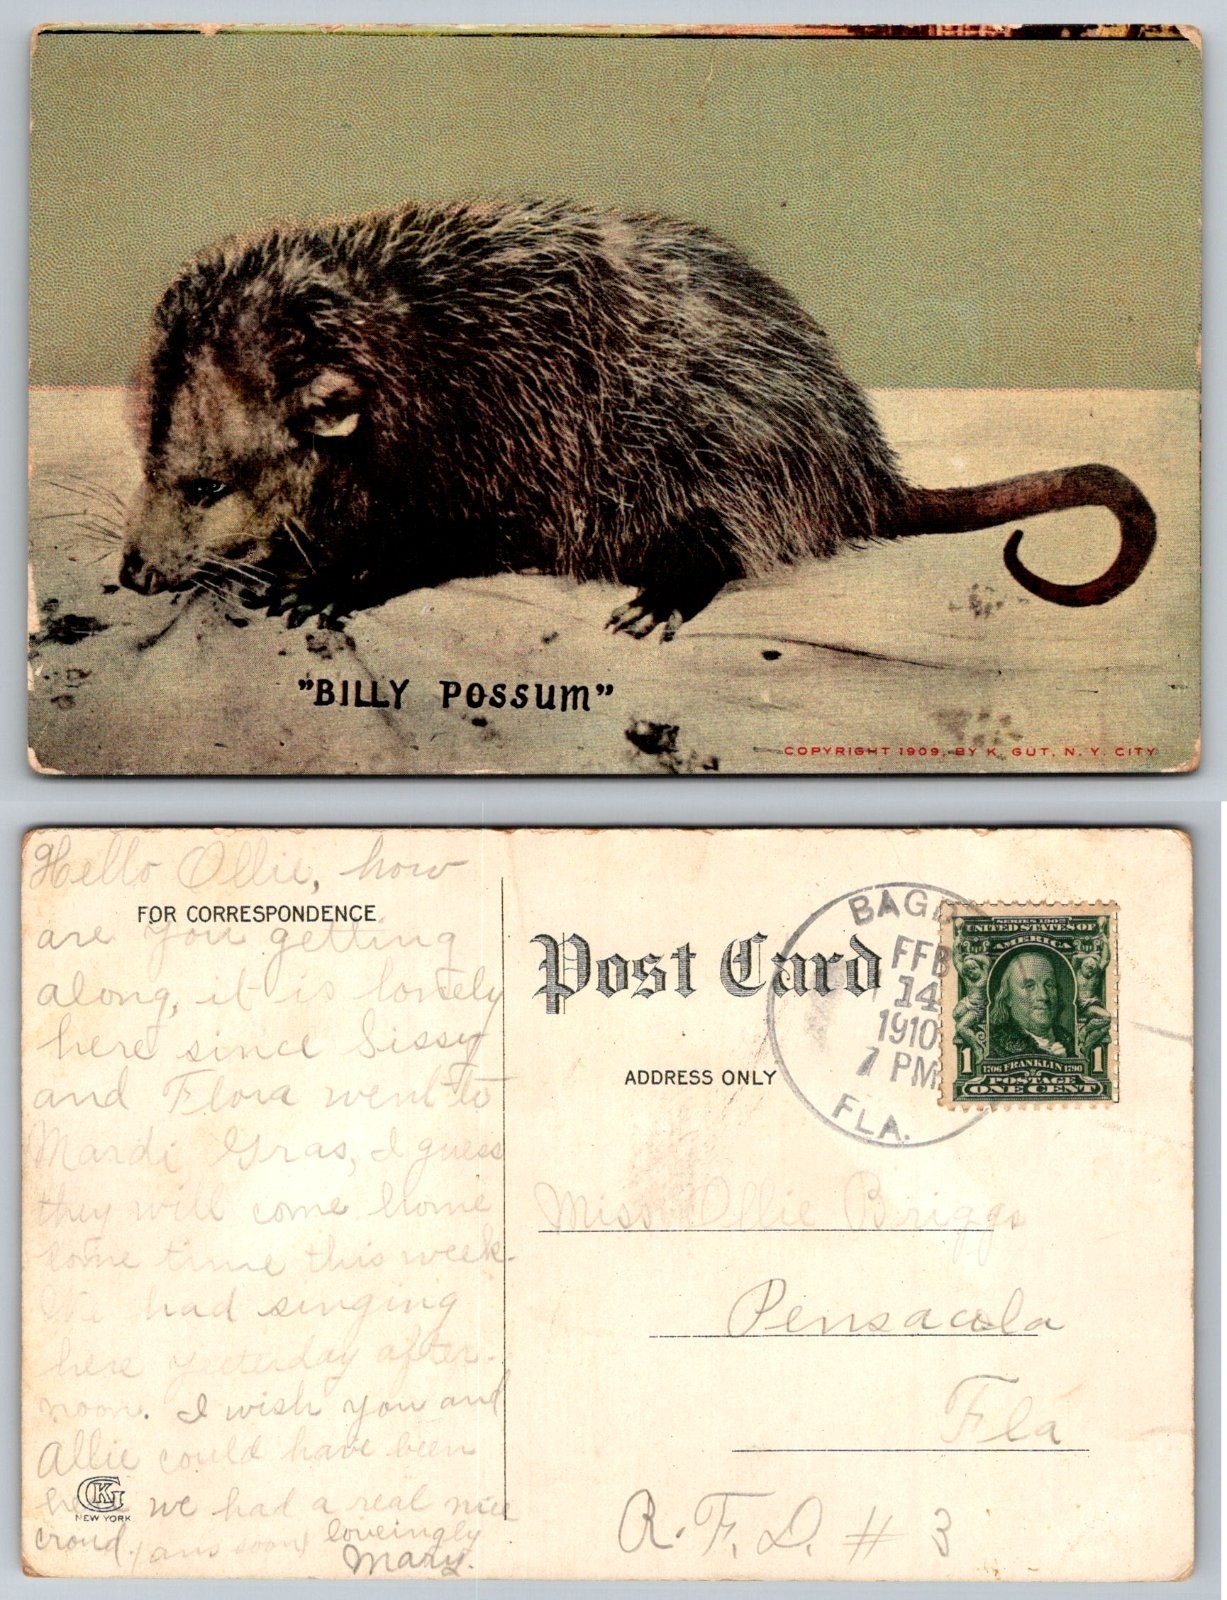 "BILLY POSSUM"
COPYRIGHT 1909, BY K. GUT, N. Y. CITY
Hello Ollie, how
FOR CORRESPONDENCE
are you getting
along, it is lonely
here since Sissy
and Flora went to
Mardi Gras, I guess
they will come home
some time this week.
We had singing
here yesterday after-
noon. I wish you and
Allie could have been
here we had a real nice
croud. ans soon loveingly
Mary.
GK
NEW YORK
Post Card
ADDRESS ONLY
BAGD
FEB
14
1910
7 PM
FLA.
SERIES 1902
UNITED STATES OF
AMERICA
1 1
1706 FRANKLIN 1790
POSTAGE
ONE CENT
Miss Ollie Briggs
Pensacola
Fla
R.F.D. # 3